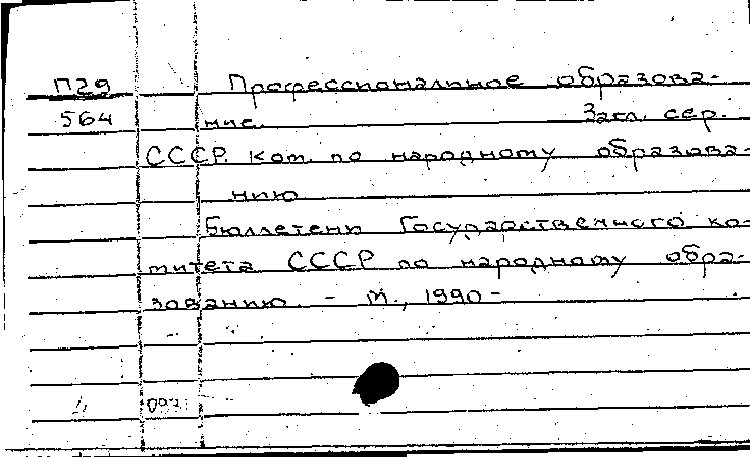 П29 Профессиональное образова-
564 ние. Закл. сер.
СССР. Ком. по народному образова-
нию
Бюллетень Государственного ко-
митета СССР по народному обра-
зованию. - М., 1990-